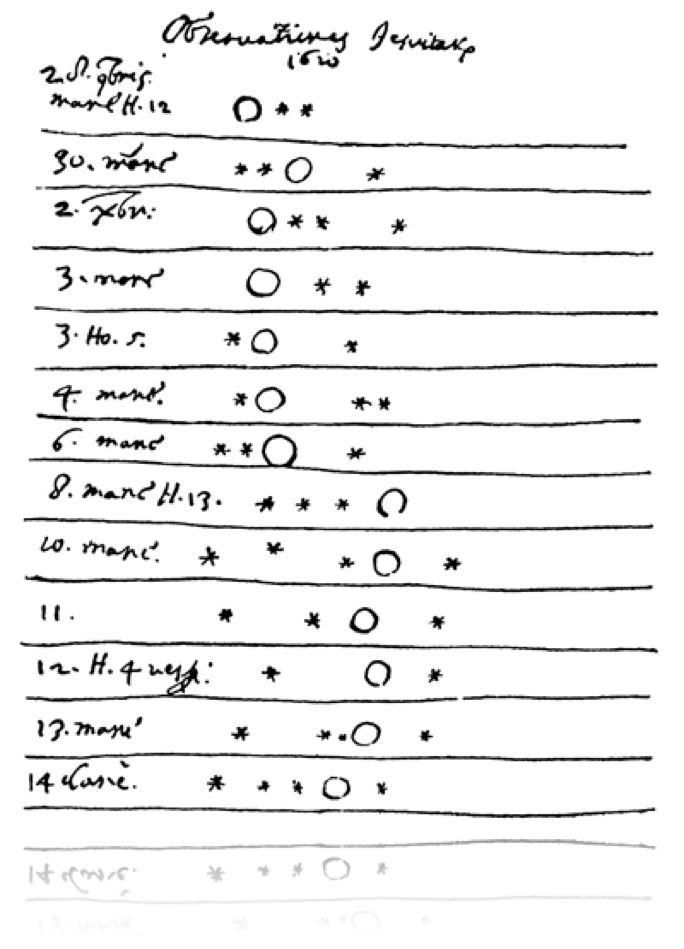 Observationes Jesuitarum
1610
2. J. 9bris.
mane H. 12
30. mane
2. Xbr:
3. mane
3. Ho. 5.
4. mane.
6. mane
8. mane H. 13.
10. mane.
11.
12. H. 4 vesp:
13. mane
14